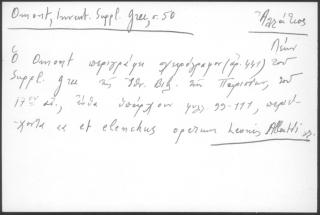 Omont, Invent. Suppl. Grec, σ. 50
Ἀλλάτιος
Λέων
Ὁ Omont περιγράφει χειρόγραφον (ἀρ. 441) τοῦ
Suppl. grec τῆς Ἐθν. Βιβ. τῆς Παρισίων, τοῦ
17ου αἰ., ἔνθα ὑπάρχουν 99-111, περιέ-
χοντα et elenchus operum Leonis Allatii